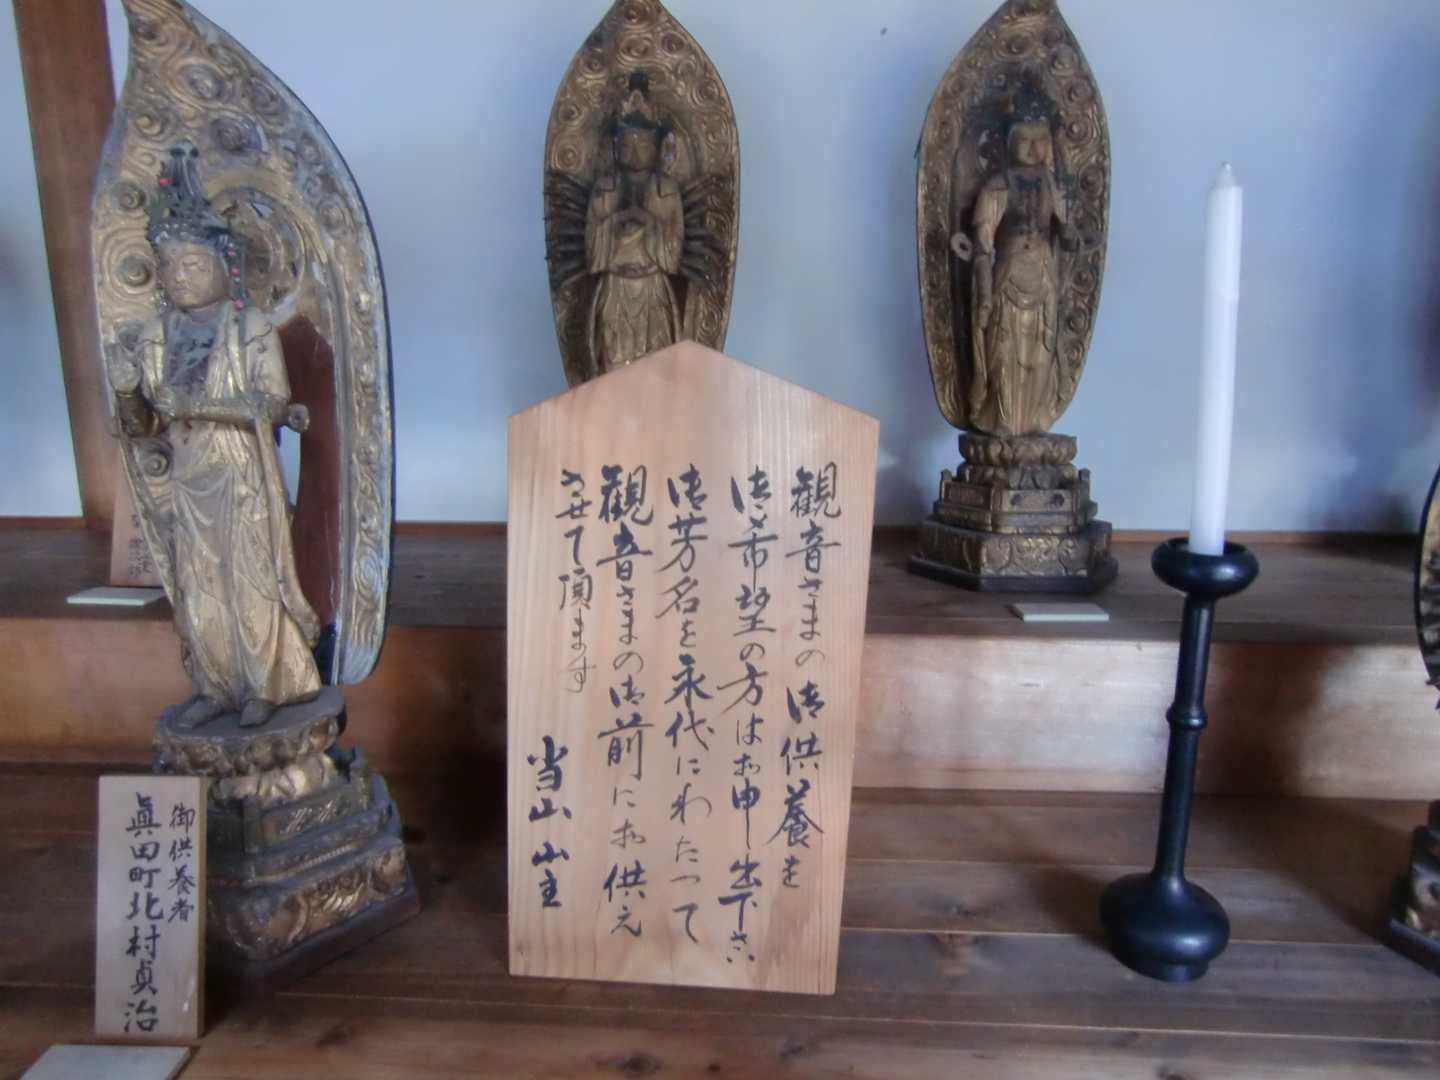 観音さまの御供養を
御希望の方はお申し出下さい
御芳名を永代にわたって
観音さまの御前にお供え
させて頂ます
当山 山主
御供養者
眞田町北村貞治